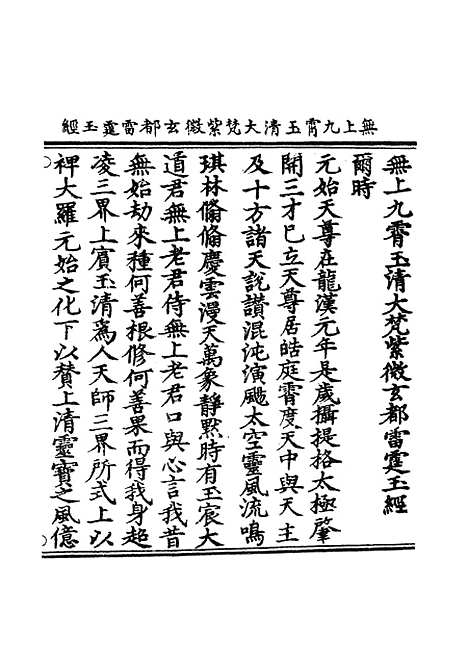 無上九霄玉清大梵紫微玄都雷霆玉經
無上九霄玉清大梵紫微玄都雷霆玉經
爾時
元始天尊在龍漢元年是歲攝提格太極肇
開三才已立天尊居皓庭霄度天中與天主
及十方諸天說讚混沌演颺太空靈風流鳴
琪林翛翛慶雲漫天萬象靜默時有玉宸大
道君無上老君侍無上老君口與心言我昔
無始劫來種何善根修何善果而得我身超
凌三界上賓玉清爲人天師三界所式上以
裨大羅元始之化下以贊上清靈寶之風億